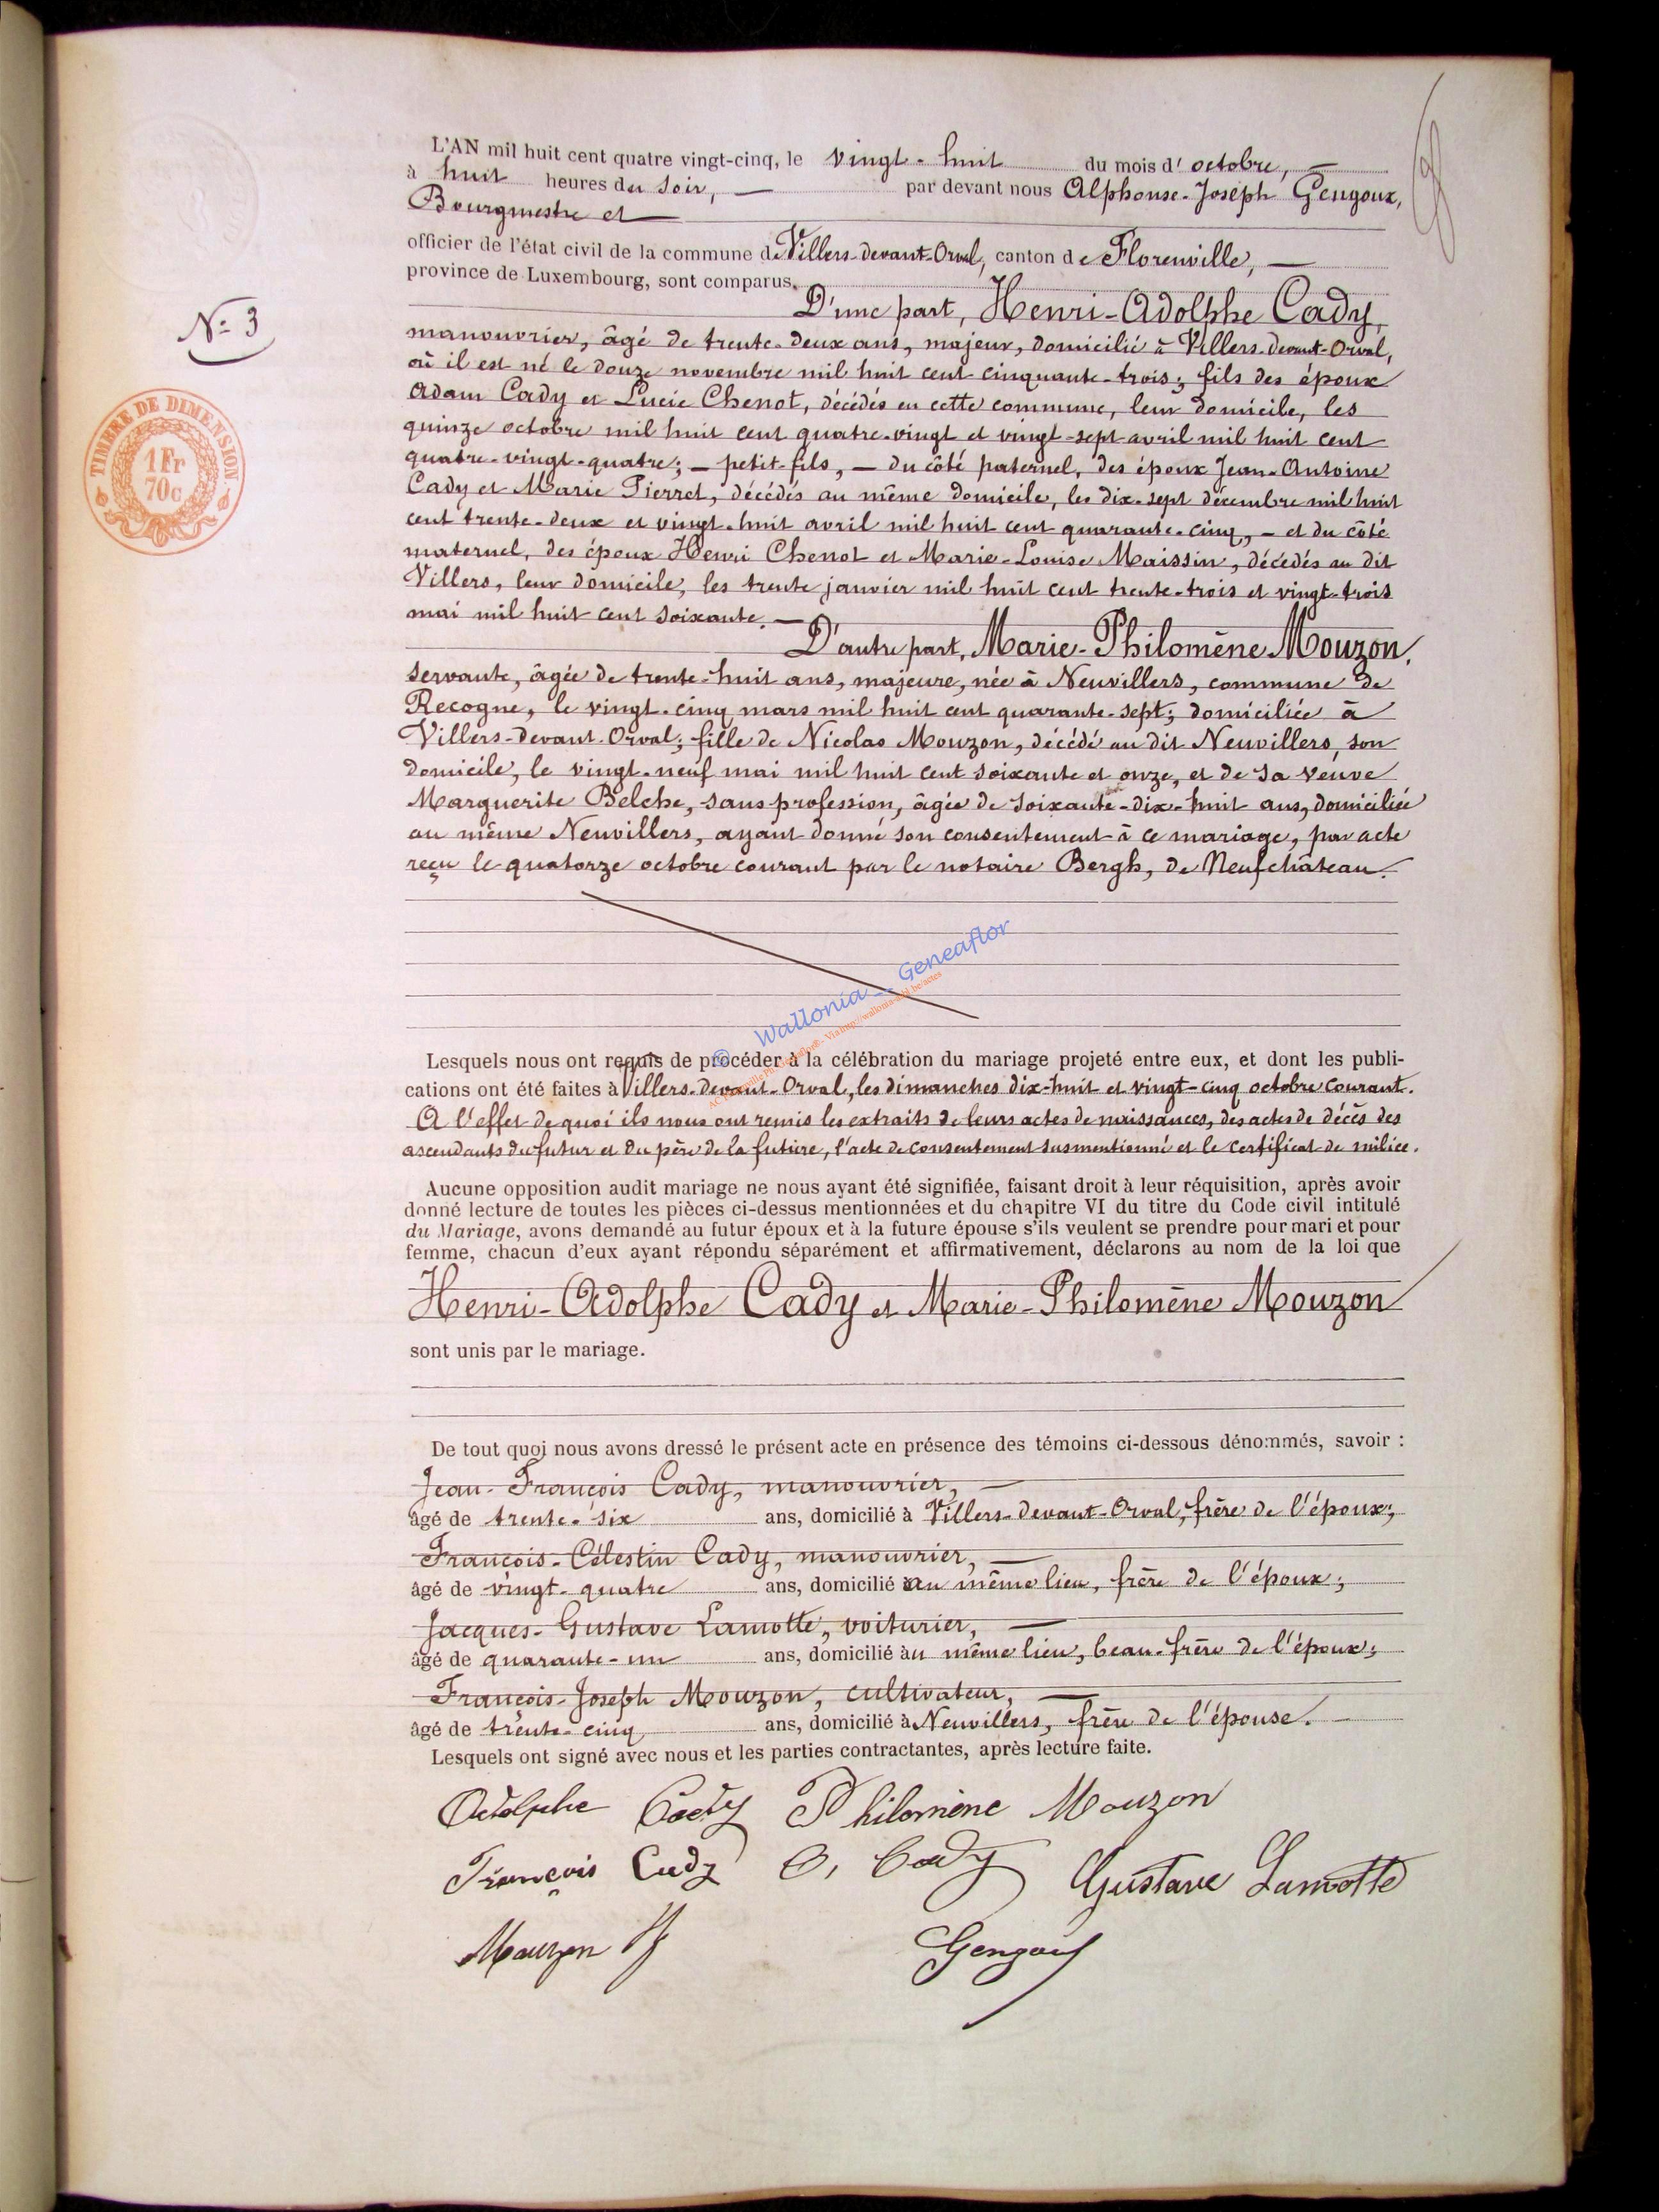 L'AN mil huit cent quatre vingt-cinq, le vingt-huit du mois d'octobre,
à huit heures du soir, par devant nous Alphonse-Joseph Gengoux,
Bourgmestre et
officier de l'état civil de la commune de Villers-devant-Orval, canton de Florenville,
province de Luxembourg, sont comparus.
D'une part, Henri-Adolphe Cady,
N° 3
manouvrier, âgé de trente-deux ans, majeur, domicilié à Villers-devant-Orval,
où il est né le douze novembre mil huit cent cinquante-trois; fils des époux
Adam Cady et Lucie Chenot, décédés en cette commune, leur domicile, les
TIMBRE DE DIMENSION
1 Fr
70c
quinze octobre mil huit cent quatre-vingt et vingt-sept avril mil huit cent
quatre-vingt-quatre; — petit-fils, — du côté paternel, des époux Jean-Antoine
Cady et Marie Pierret, décédés au même domicile, les dix-sept décembre mil huit
cent trente-deux et vingt-huit avril mil huit cent quarante-cinq, — et du côté
maternel, des époux Henri Chenot et Marie-Louise Maissin, décédés au dit
Villers, leur domicile, les trente janvier mil huit cent trente-trois et vingt-trois
mai mil huit cent soixante. —
D'autre part, Marie-Philomène Mouzon,
servante, âgée de trente-huit ans, majeure, née à Neuvillers, commune de
Recogne, le vingt-cinq mars mil huit cent quarante-sept; domiciliée à
Villers-devant-Orval; fille de Nicolas Mouzon, décédé au dit Neuvillers, son
domicile, le vingt-neuf mai mil huit cent soixante et onze, et de sa veuve
Marguerite Belche, sans profession, âgée de soixante-dix-huit ans, domiciliée
au même Neuvillers, ayant donné son consentement à ce mariage, par acte
reçu le quatorze octobre courant par le notaire Bergh, de Neufchâteau.
© Wallonia _ Geneaflor
Lesquels nous ont requis de procéder à la célébration du mariage projeté entre eux, et dont les publi-
cations ont été faites à Villers-devant-Orval, les dimanches dix-huit et vingt-cinq octobre courant.
A l'effet de quoi ils nous ont remis les extraits de leurs actes de naissances, des actes de décès des
ascendants du futur et du père de la future, l'acte de consentement susmentionné et le certificat de milice.
Aucune opposition audit mariage ne nous ayant été signifiée, faisant droit à leur réquisition, après avoir
donné lecture de toutes les pièces ci-dessus mentionnées et du chapitre VI du titre du Code civil intitulé
du Mariage, avons demandé au futur époux et à la future épouse s'ils veulent se prendre pour mari et pour
femme, chacun d'eux ayant répondu séparément et affirmativement, déclarons au nom de la loi que
Henri-Adolphe Cady et Marie-Philomène Mouzon
sont unis par le mariage.
De tout quoi nous avons dressé le présent acte en présence des témoins ci-dessous dénommés, savoir :
Jean-François Cady, manouvrier,
âgé de trente-six ans, domicilié à Villers-devant-Orval, frère de l'époux;
François-Célestin Cady, manouvrier,
âgé de vingt-quatre ans, domicilié au même lieu, frère de l'époux;
Jacques-Gustave Lamotte, voiturier,
âgé de quarante-un ans, domicilié au même lieu, beau-frère de l'époux;
François-Joseph Mouzon, cultivateur,
âgé de trente-cinq ans, domicilié à Neuvillers, frère de l'épouse.
Lesquels ont signé avec nous et les parties contractantes, après lecture faite.
Adolphe Cady Philomène Mouzon
François Cady C, Cady Gustave Lamotte
Mouzon Gengoux